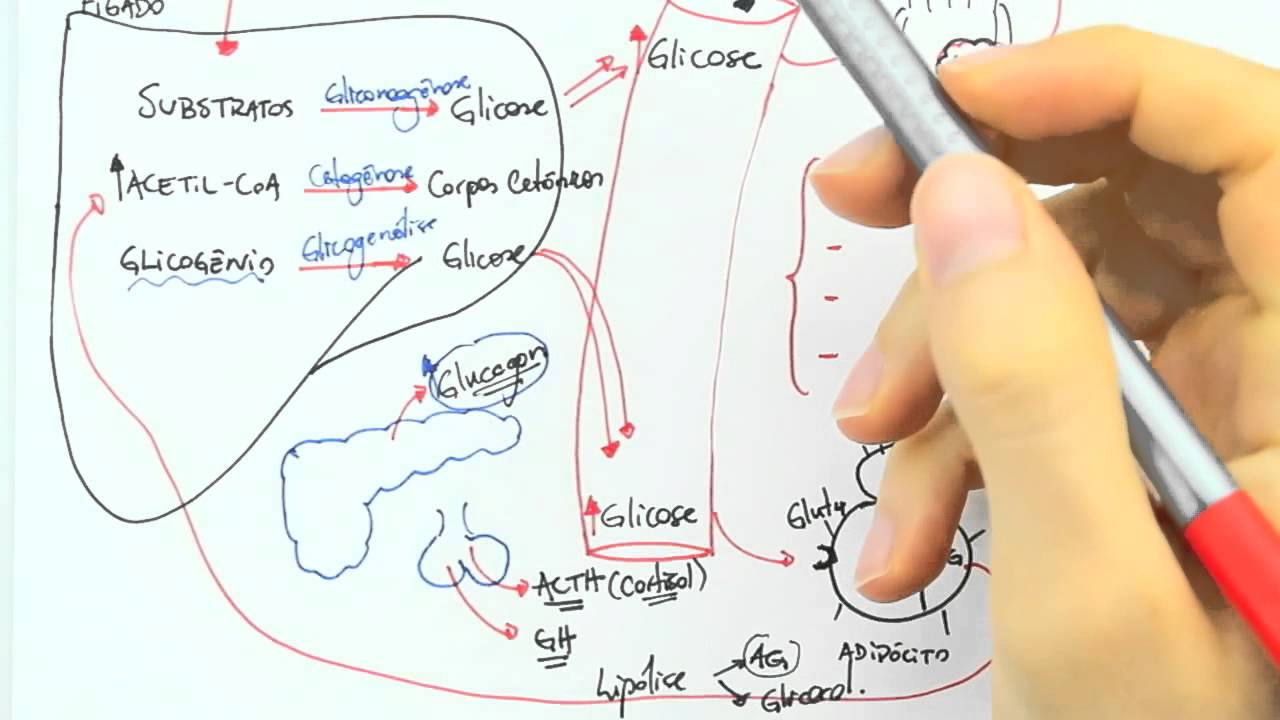 FÍGADO
SUBSTRATOS Gliconeogênese Glicose
ACETIL-CoA Cetogênese Corpos Cetônicos
GLICOGÊNIO Glicogenólise Glicose
Glicose
Glucagon
Glicose
ACTH (Cortisol)
GH
Glut4
G
ADIPÓCITO
Lipólise AG
Glicerol.